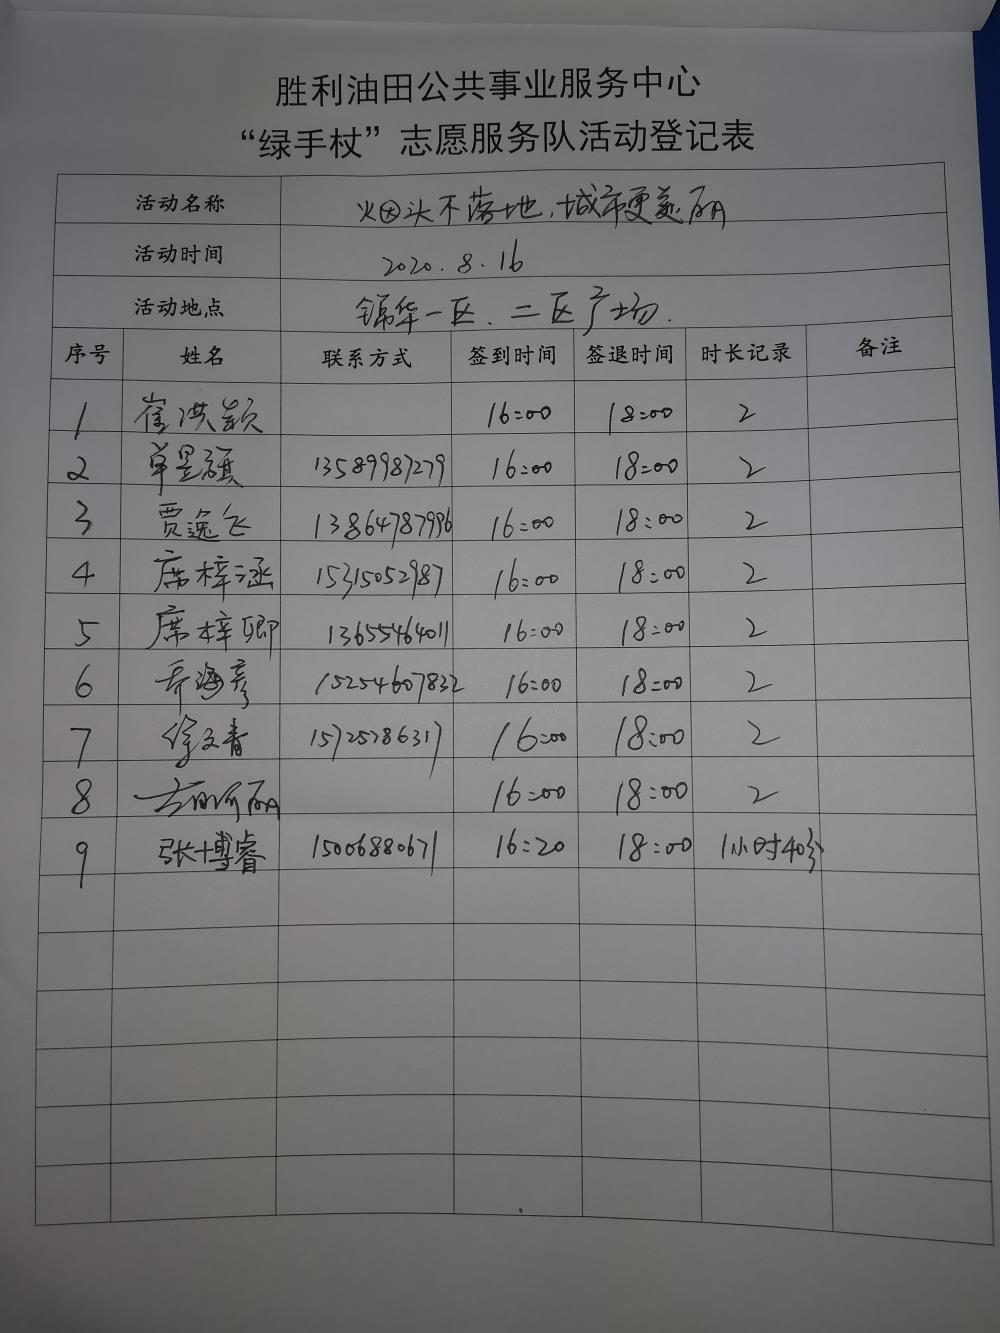 胜利油田公共事业服务中心
“绿手杖”志愿服务队活动登记表
活动名称 烟头不落地,城市更美丽
活动时间 2020.8.16
活动地点 锦华一区、二区广场.
序号 姓名 联系方式 签到时间 签退时间 时长记录 备注
1 崔洪颖 16:00 18:00 2
2 单昱祺 13589987279 16:00 18:00 2
3 贾逸飞 13864787996 16:00 18:00 2
4 席梓涵 15315052987 16:00 18:00 2
5 席梓卿 13655464011 16:00 18:00 2
6 乔海彦 15254607832 16:00 18:00 2
7 徐文青 15725786317 16:00 18:00 2
8 16:00 18:00 2
9 张博睿 15006880671 16:20 18:00 1小时40分